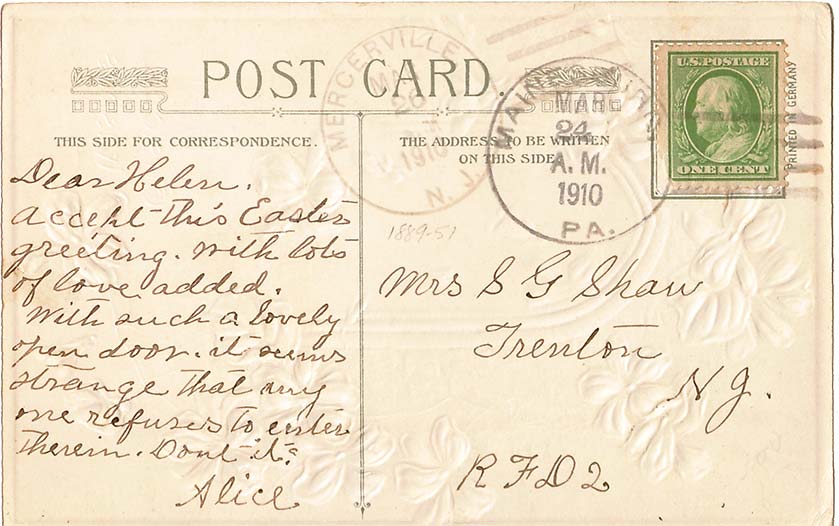 POST CARD.
THIS SIDE FOR CORRESPONDENCE.
Dear Helen.
Accept this Easter
greeting. With lots
of love added.
With such a lovely
open door. it seems
strange that any
one refuses to enter
therein. Dont it?
Alice
THE ADDRESS TO BE WRITTEN
ON THIS SIDE
MERCERVILLE
26
1910
N. J.
MAR
24
A.M.
1910
PA.
U.S. POSTAGE
ONE CENT
PRINTED IN GERMANY
1889-51
Mrs S G Shaw
Trenton
N J.
R F D 2